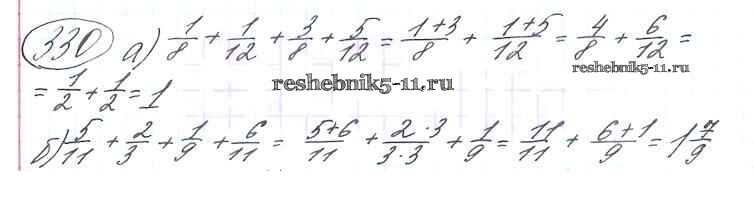 330 а) 1/8 + 1/12 + 3/8 + 5/12 = (1+3)/8 + (1+5)/12 = 4/8 + 6/12 =
reshebnik5-11.ru
= 1/2 + 1/2 = 1
reshebnik5-11.ru
б) 5/11 + 2/3 + 1/9 + 6/11 = (5+6)/11 + (2·3)/(3·3) + 1/9 = 11/11 + (6+1)/9 = 1 7/9